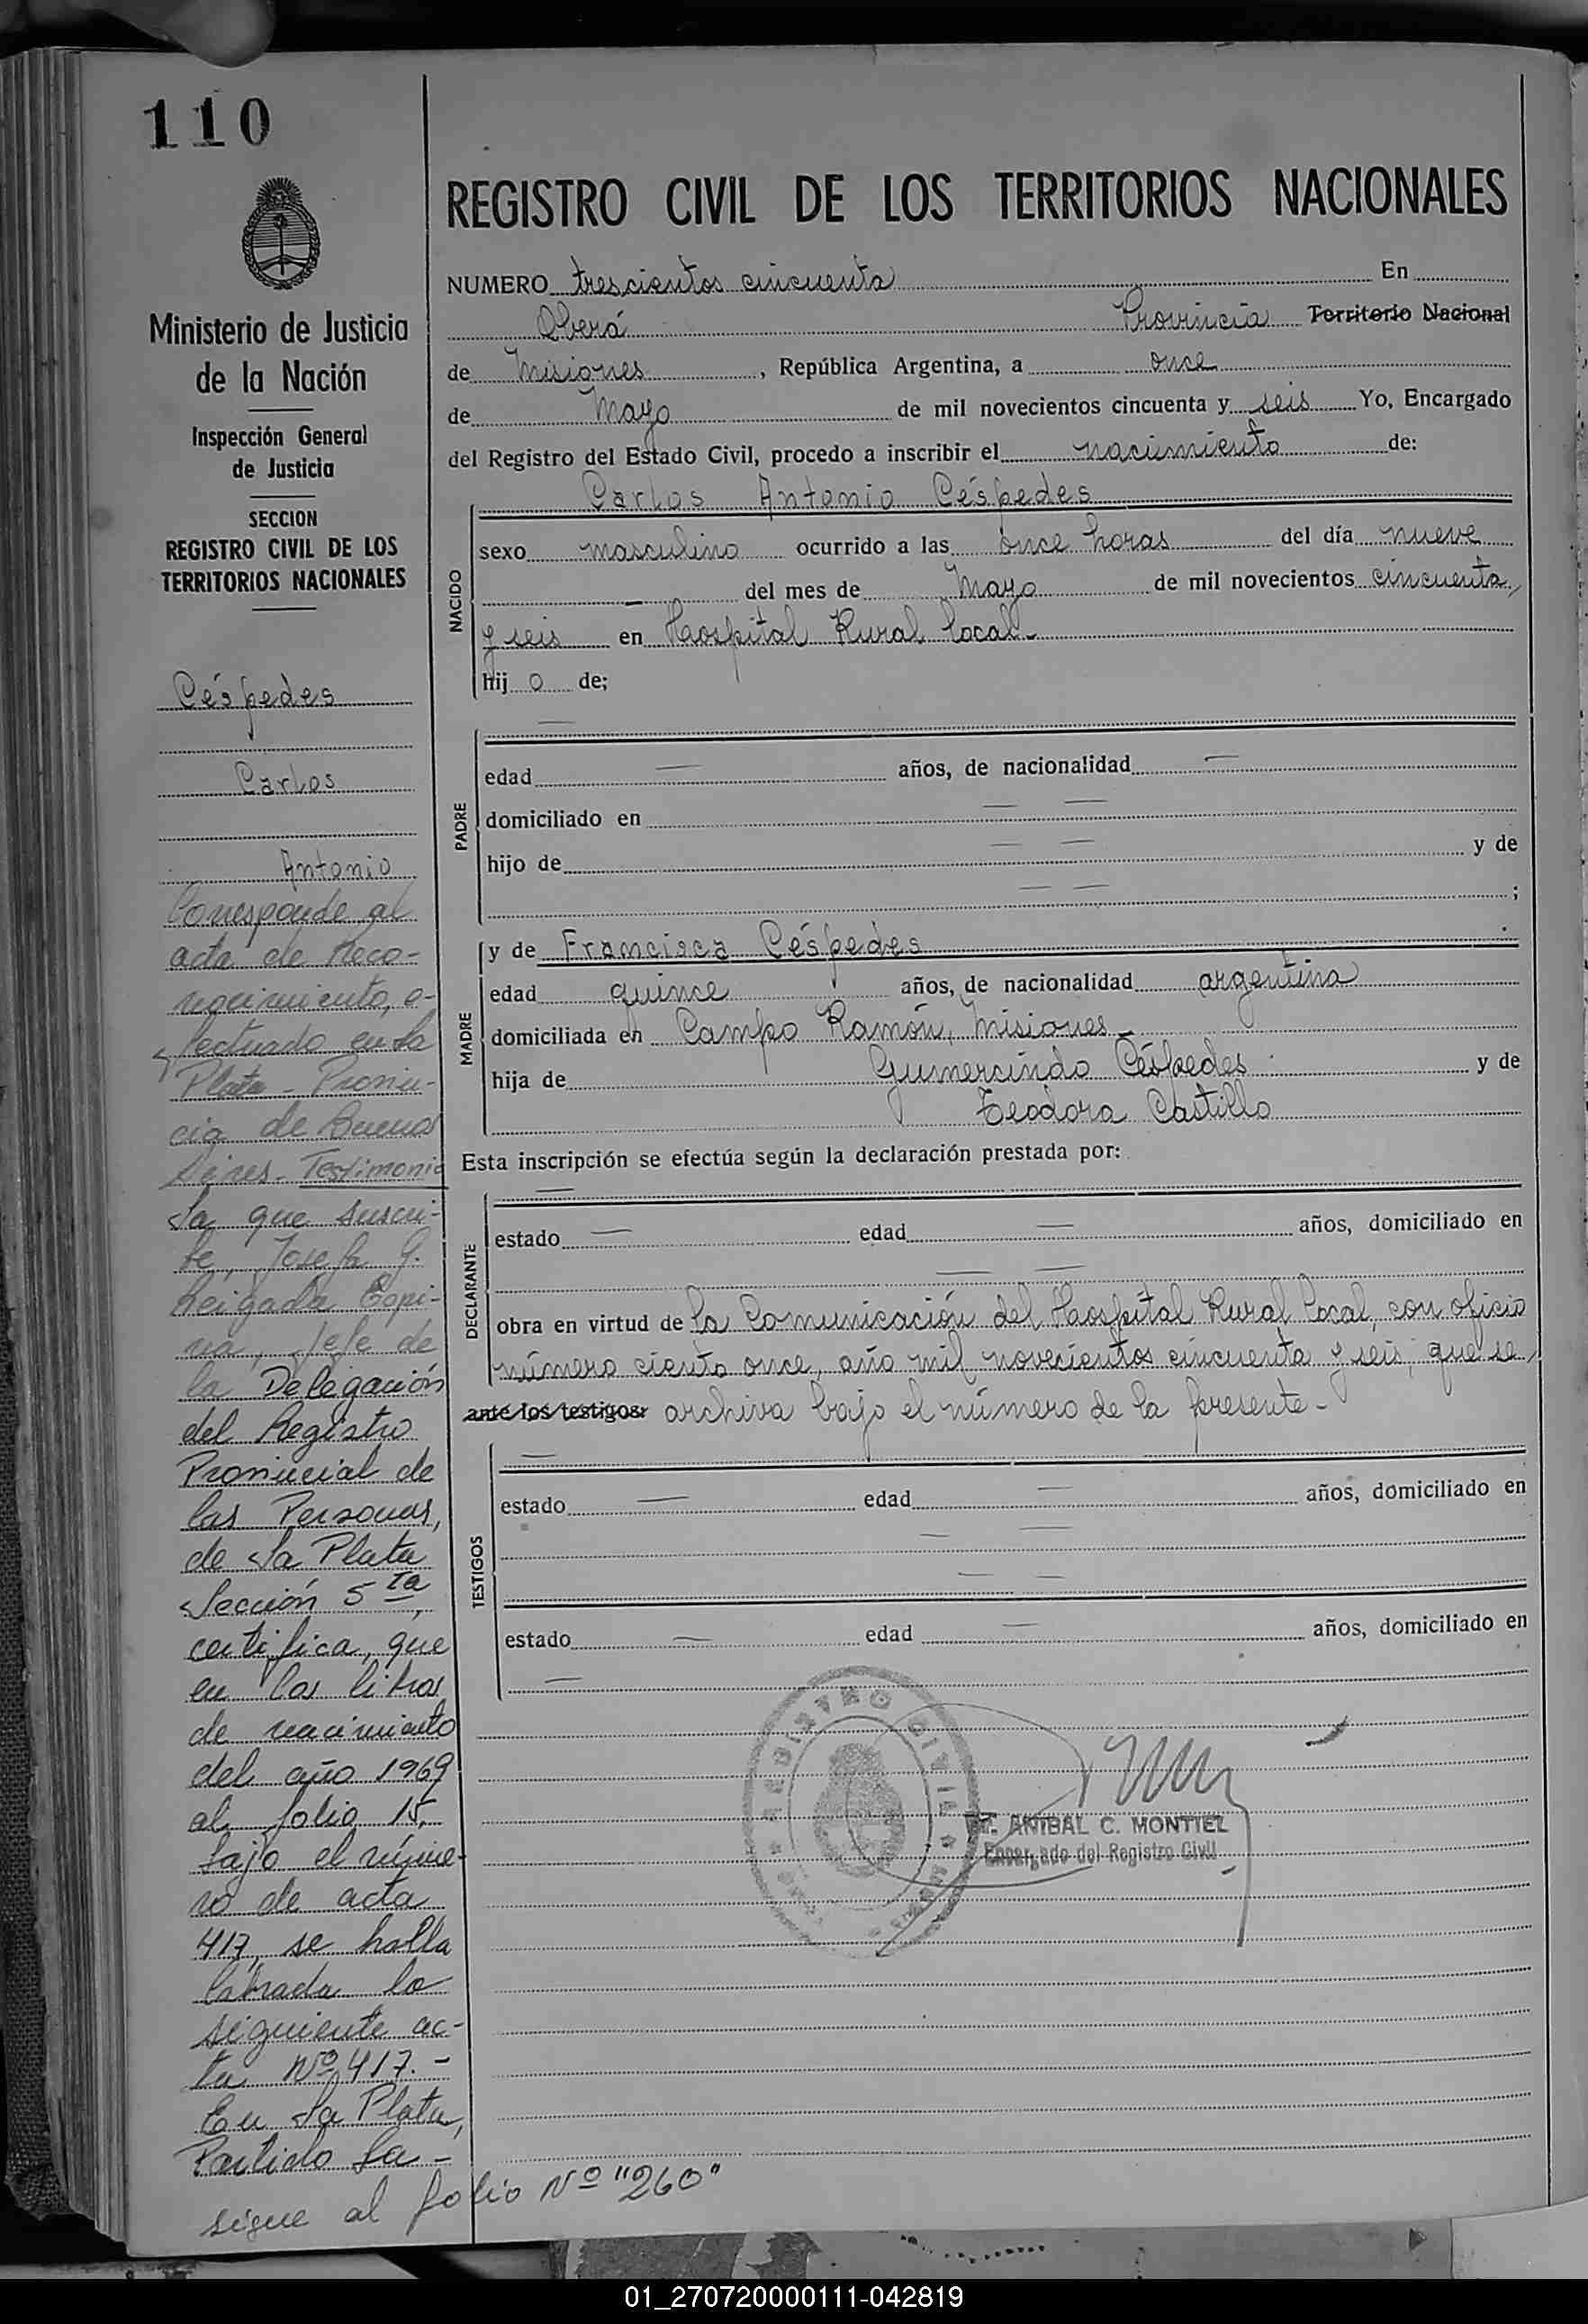 110
Ministerio de Justicia
de la Nación
Inspección General
de Justicia
SECCION
REGISTRO CIVIL DE LOS
TERRITORIOS NACIONALES
Céspedes
Carlos
Antonio
Corresponde al
acta de Reco-
nocimiento, e-
fectuado en La
Plata Provin-
cia de Buenos
Aires. Testimonio
La que suscri-
be, Josefa G.
Reigada Espi-
na, Jefe de
la Delegación
del Registro
Provincial de
las Personas,
de La Plata
Sección 5ta,
certifica, que
en los libros
de nacimiento
del año 1969
al folio 15,
bajo el núme-
ro de acta
417, se halla
labrada la
siguiente ac-
ta Nº 417.-
En La Plata,
Partido La-
sigue al folio Nº "260"
REGISTRO CIVIL DE LOS TERRITORIOS NACIONALES
NUMERO trescientos cincuenta En
Oberá Provincia Territorio Nacional
de Misiones, República Argentina, a once
de Mayo de mil novecientos cincuenta y seis Yo, Encargado
del Registro del Estado Civil, procedo a inscribir el nacimiento de:
Carlos Antonio Céspedes
NACIDO
sexo masculino ocurrido a las once horas del día nueve
— del mes de Mayo de mil novecientos cincuenta
y seis en Hospital Rural local-
hij o de;
—
PADRE
edad — años, de nacionalidad —
domiciliado en — —
hijo de — — y de
— — ;
MADRE
y de Francisca Céspedes
edad quince años, de nacionalidad argentina
domiciliada en Campo Ramón, Misiones-
hija de Gumercindo Céspedes y de
Teodora Castillo
Esta inscripción se efectúa según la declaración prestada por:
—
DECLARANTE
estado — edad — años, domiciliado en
— —
obra en virtud de la Comunicación del Hospital Rural Local, con oficio
número ciento once, año mil novecientos cincuenta y seis, que se
ante los testigos: archiva bajo el número de la presente-
—
TESTIGOS
estado — edad — años, domiciliado en
— —
— —
estado — edad — años, domiciliado en
—
REGISTRO CIVIL
ANIBAL C. MONTIEL
Encargado del Registro Civil
01_270720000111-042819